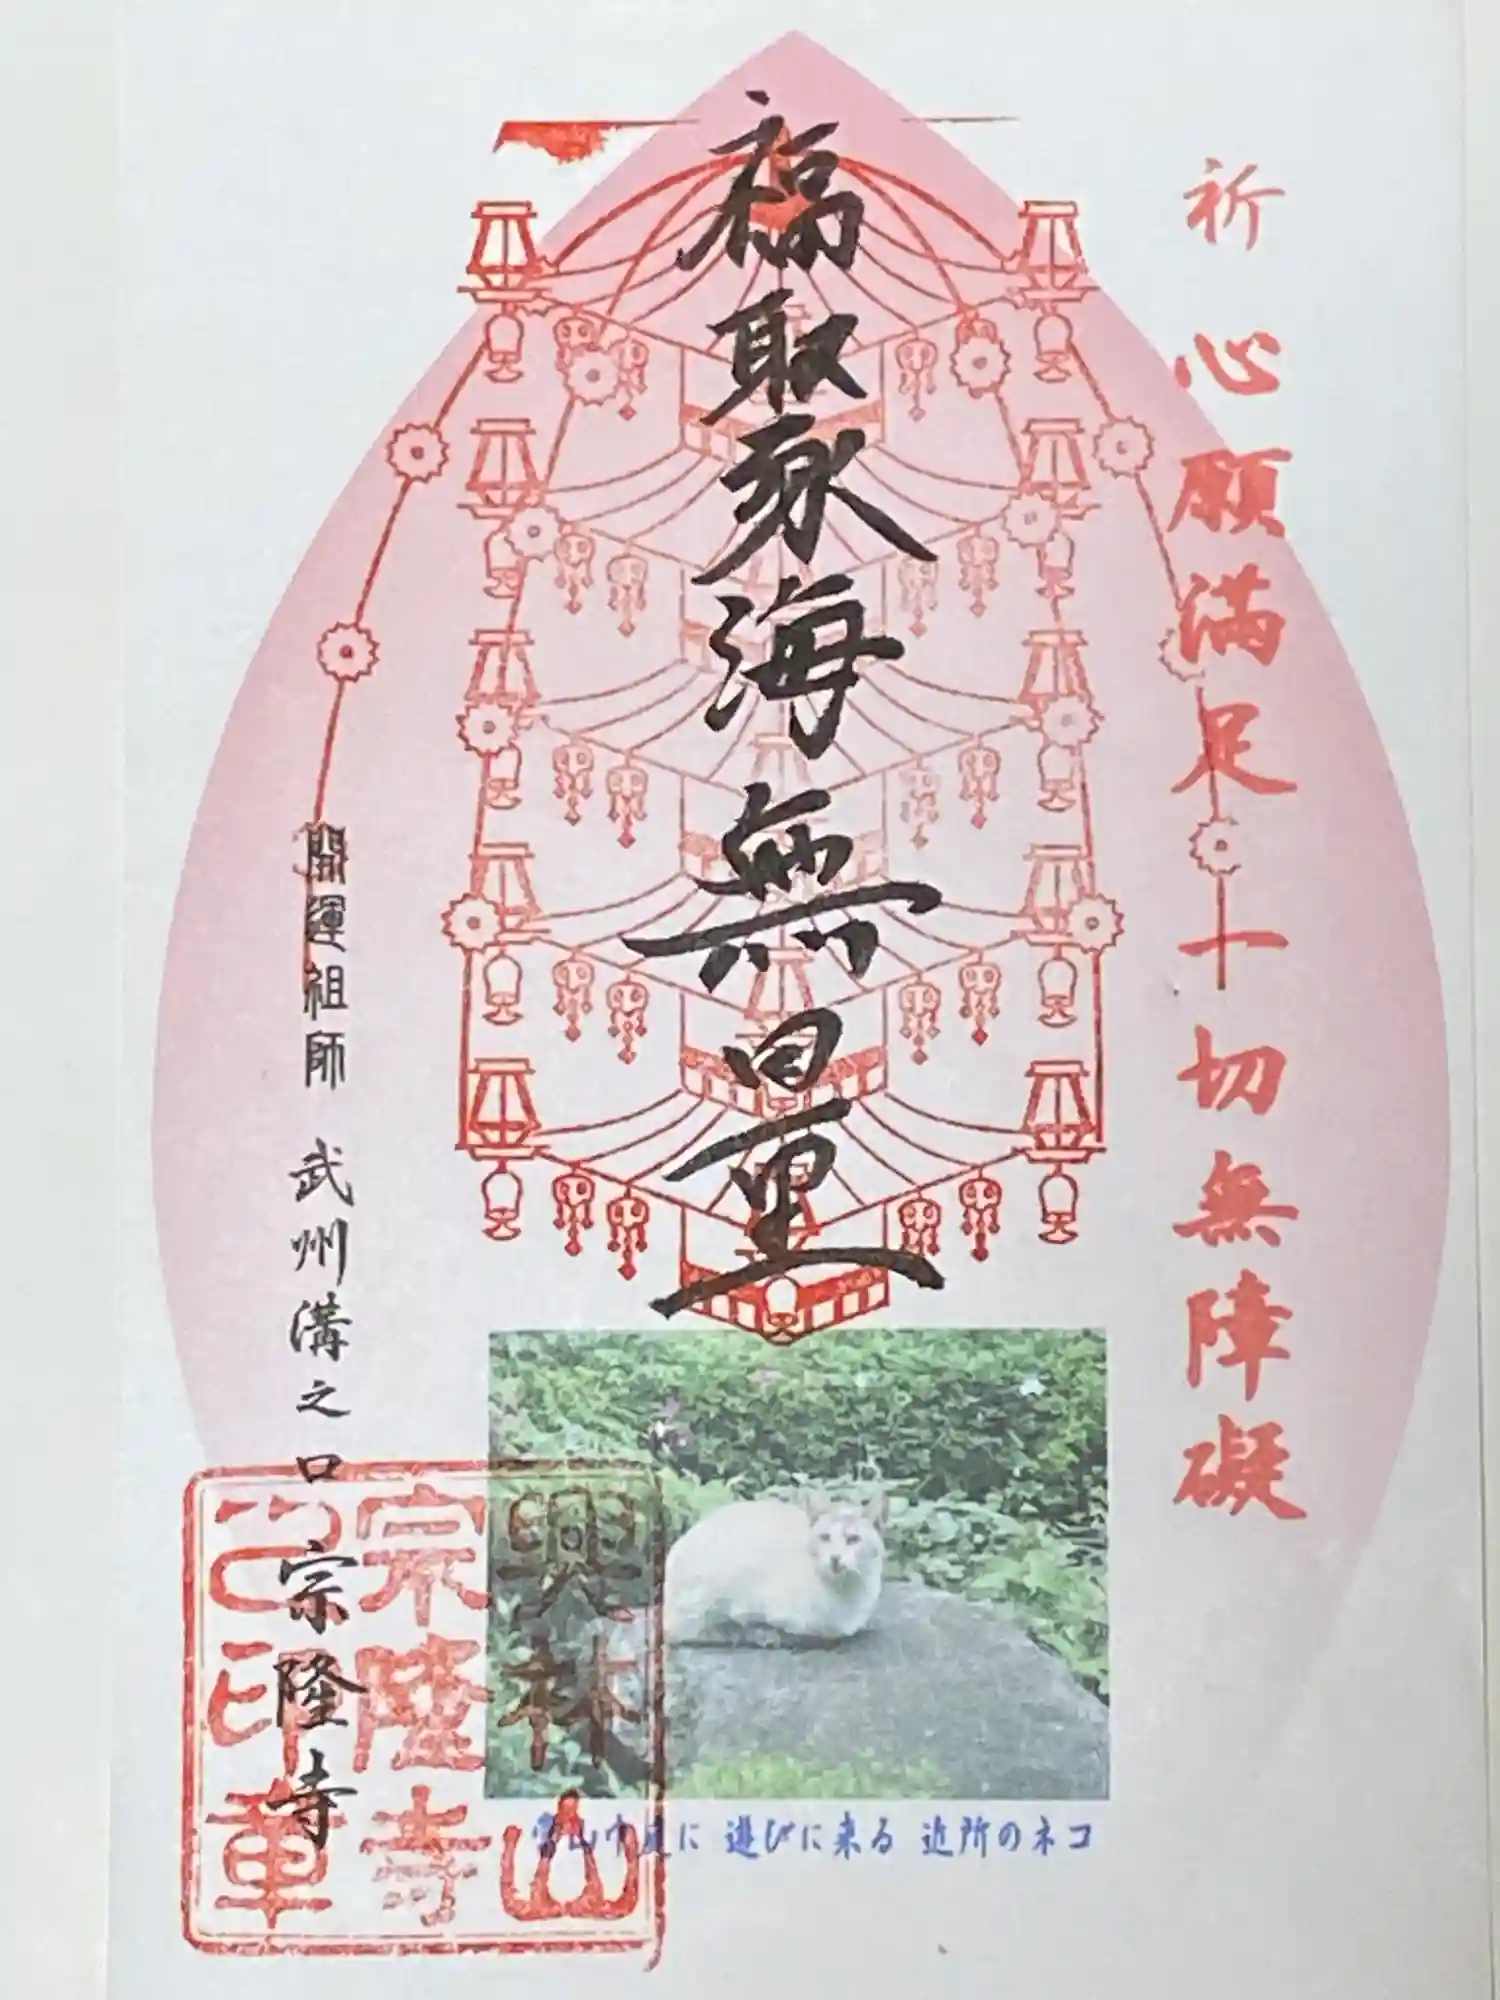 祈 心願満足 一切無障礙
福聚海無量
開運祖師 武州溝之口 宗隆寺
興林山
宗隆寺
之印章
当山中庭に 遊びに来る 近所のネコ